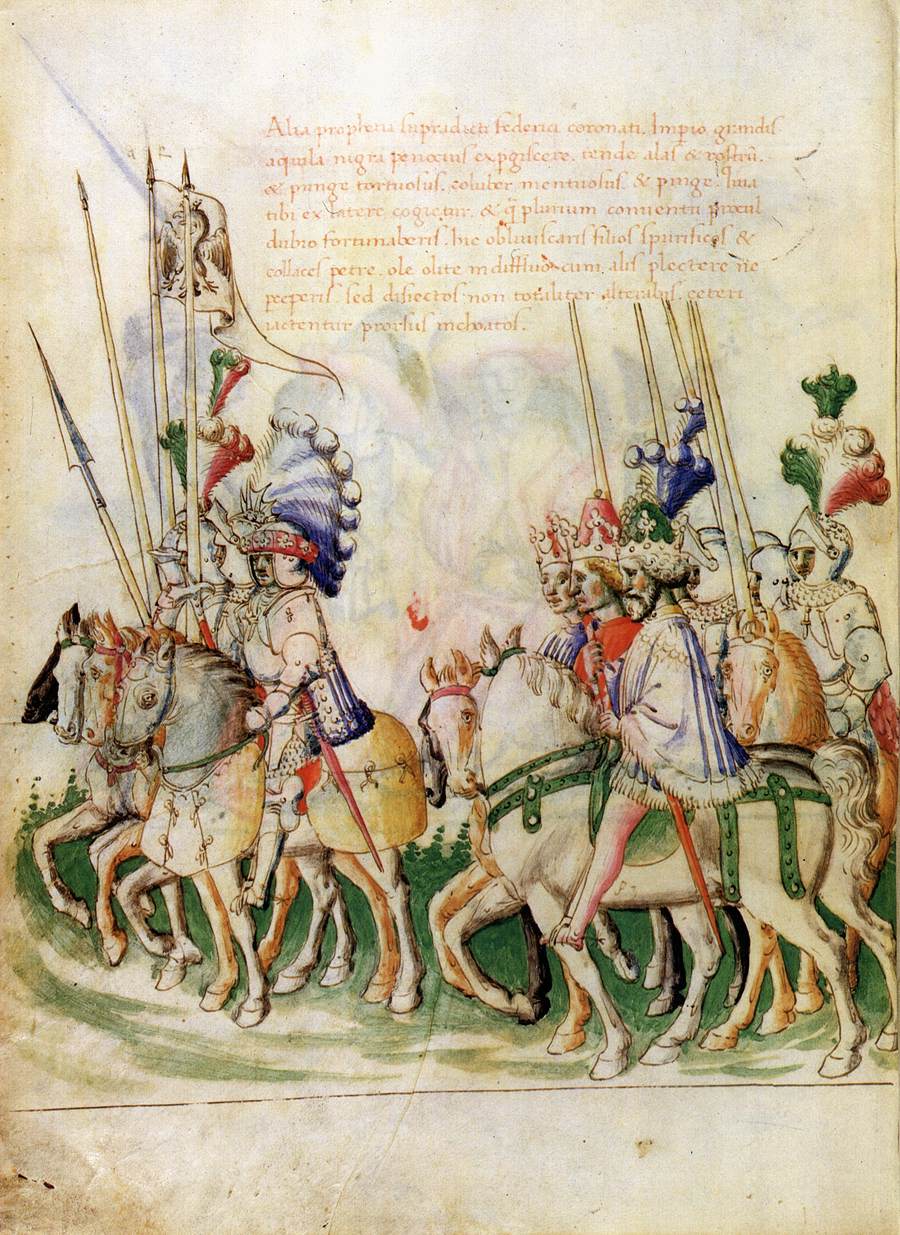 Alia prophetia supradicti federici coronati. Impio grandis
aquila nigra penocius expgiscere. tende alas & rostrū.
& punge tortuosus. coluber mentuosus. & pinge.
tibi ex latere cogietur. & q̄ plurium conventū procul
dubio fortunaberis. hic obliviscaris filios spurificos &
collaces petre. ole olite cum. alis plectere ne
peeperis. sed disiectos non totaliter ceteri
iactentur prorsus inchoatos.